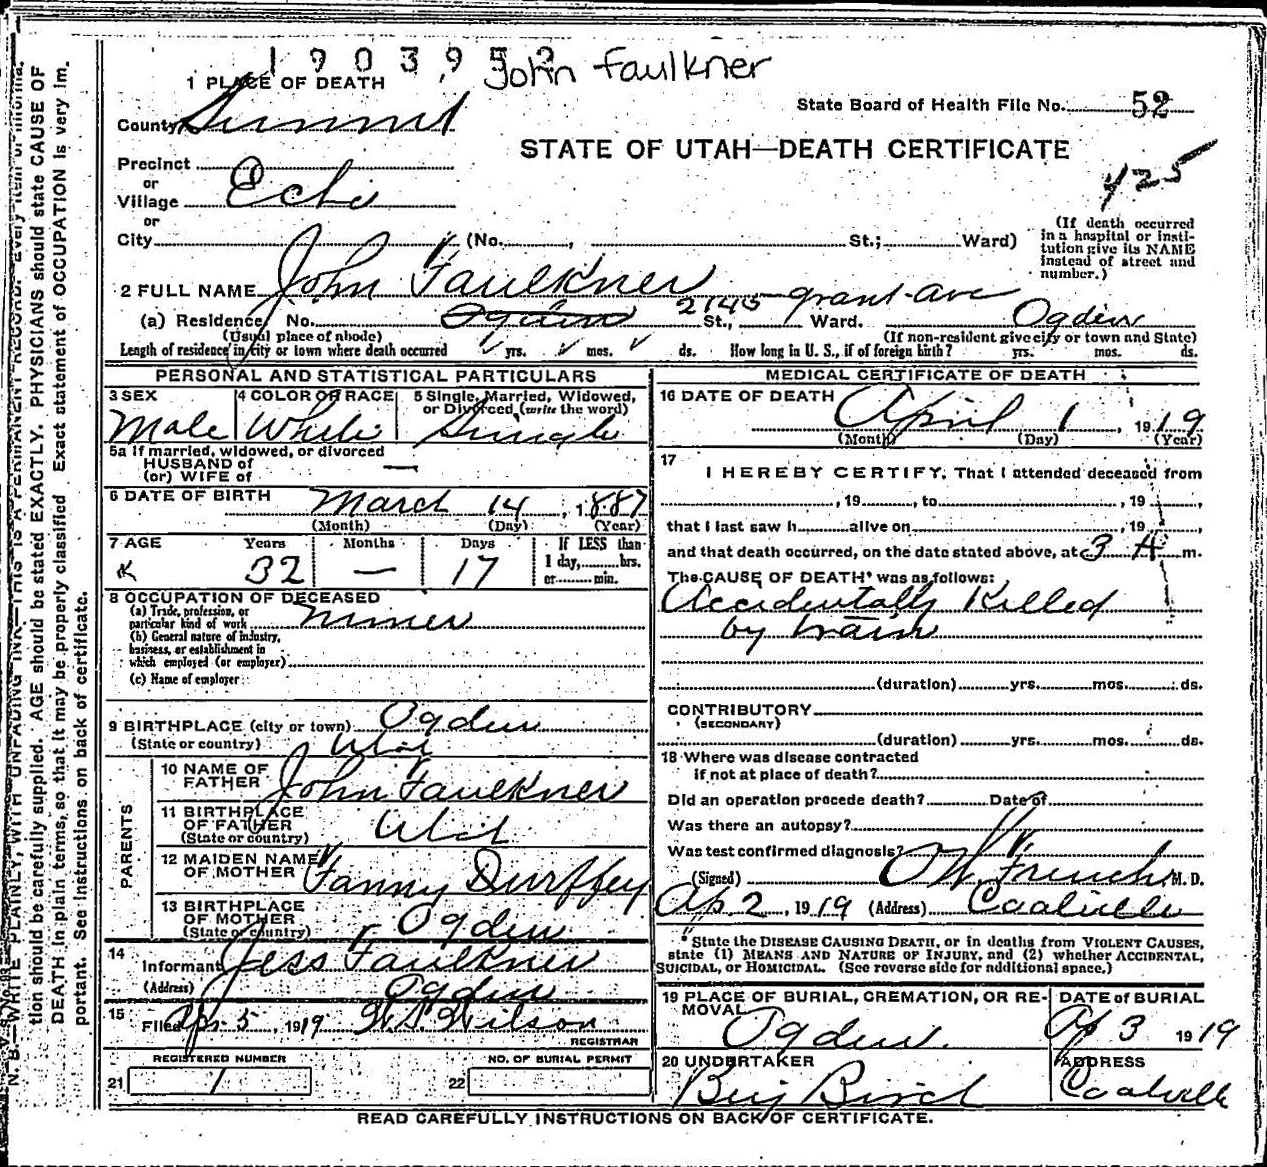 1903952 John Faulkner
1 PLACE OF DEATH
State Board of Health File No. 52
County Summit
STATE OF UTAH—DEATH CERTIFICATE
425
Precinct
or
Village Echo
or
City (No. , St.; Ward)
(If death occurred
in a hospital or insti-
tution give its NAME
instead of street and
number.)
2 FULL NAME John Faulkner
(a) Residence, No. Ogden 2145 St., Grant Ave Ward. Ogden
(Usual place of abode) (If non-resident give city or town and State)
Length of residence in city or town where death occurred yrs. mos. ds. How long in U. S., if of foreign birth? yrs. mos. ds.
PERSONAL AND STATISTICAL PARTICULARS
3 SEX
Male
4 COLOR OR RACE
White
5 Single, Married, Widowed,
or Divorced, (write the word)
Single
5a If married, widowed, or divorced
HUSBAND of
(or) WIFE of —
6 DATE OF BIRTH March 14, 1887
(Month) (Day) (Year)
7 AGE Years Months Days If LESS than
1 day, hrs.
or min.
32 — 17
8 OCCUPATION OF DECEASED
(a) Trade, profession, or
particular kind of work Miner
(b) General nature of industry,
business, or establishment in
which employed (or employer)
(c) Name of employer
9 BIRTHPLACE (city or town) Ogden
(State or country) Utah
PARENTS
10 NAME OF
FATHER John Faulkner
11 BIRTHPLACE
OF FATHER Utah
(State or country)
12 MAIDEN NAME
OF MOTHER Fanny Durffey
13 BIRTHPLACE
OF MOTHER Ogden
(State or country)
14
Informant Jess Faulkner
(Address) Ogden
15
Filed Apr 5, 1919 Wilson
REGISTRAR
REGISTERED NUMBER
21 1
NO. OF BURIAL PERMIT
22
MEDICAL CERTIFICATE OF DEATH
16 DATE OF DEATH
April 1, 1919
(Month) (Day) (Year)
17
I HEREBY CERTIFY, That I attended deceased from
, 19 , to , 19 ,
that I last saw h alive on , 19 ,
and that death occurred, on the date stated above, at 3 A m.
The CAUSE OF DEATH* was as follows:
Accidentally Killed
by train
(duration) yrs. mos. ds.
CONTRIBUTORY
(SECONDARY)
(duration) yrs. mos. ds.
18 Where was disease contracted
if not at place of death?
Did an operation precede death? Date of
Was there an autopsy?
Was test confirmed diagnosis?
(Signed) French, M. D.
Ap 2, 1919 (Address) Coalville
* State the DISEASE CAUSING DEATH, or in deaths from VIOLENT CAUSES,
state (1) MEANS AND NATURE OF INJURY, and (2) whether ACCIDENTAL,
SUICIDAL, or HOMICIDAL. (See reverse side for additional space.)
19 PLACE OF BURIAL, CREMATION, OR RE-
MOVAL
Ogden.
DATE of BURIAL
Ap 3 1919
20 UNDERTAKER
Birch
ADDRESS
Coalville
READ CAREFULLY INSTRUCTIONS ON BACK OF CERTIFICATE.
N. B.—WRITE PLAINLY, WITH UNFADING INK—THIS IS A PERMANENT RECORD. Every item of informa-
tion should be carefully supplied. AGE should be stated EXACTLY. PHYSICIANS should state CAUSE OF
DEATH in plain terms, so that it may be properly classified Exact statement of OCCUPATION is very im-
portant. See instructions on back of certificate.